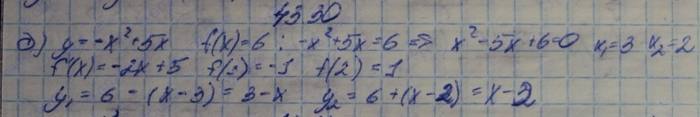 4330
д) y = -x² + 5x f(x) = 6 : -x² + 5x = 6 => x² - 5x + 6 = 0 x₁ = 3 x₂ = 2
f'(x) = -2x + 5 f(3) = -1 f(2) = 1
y₁ = 6 - (x - 3) = 3 - x y₂ = 6 + (x - 2) = x - 2